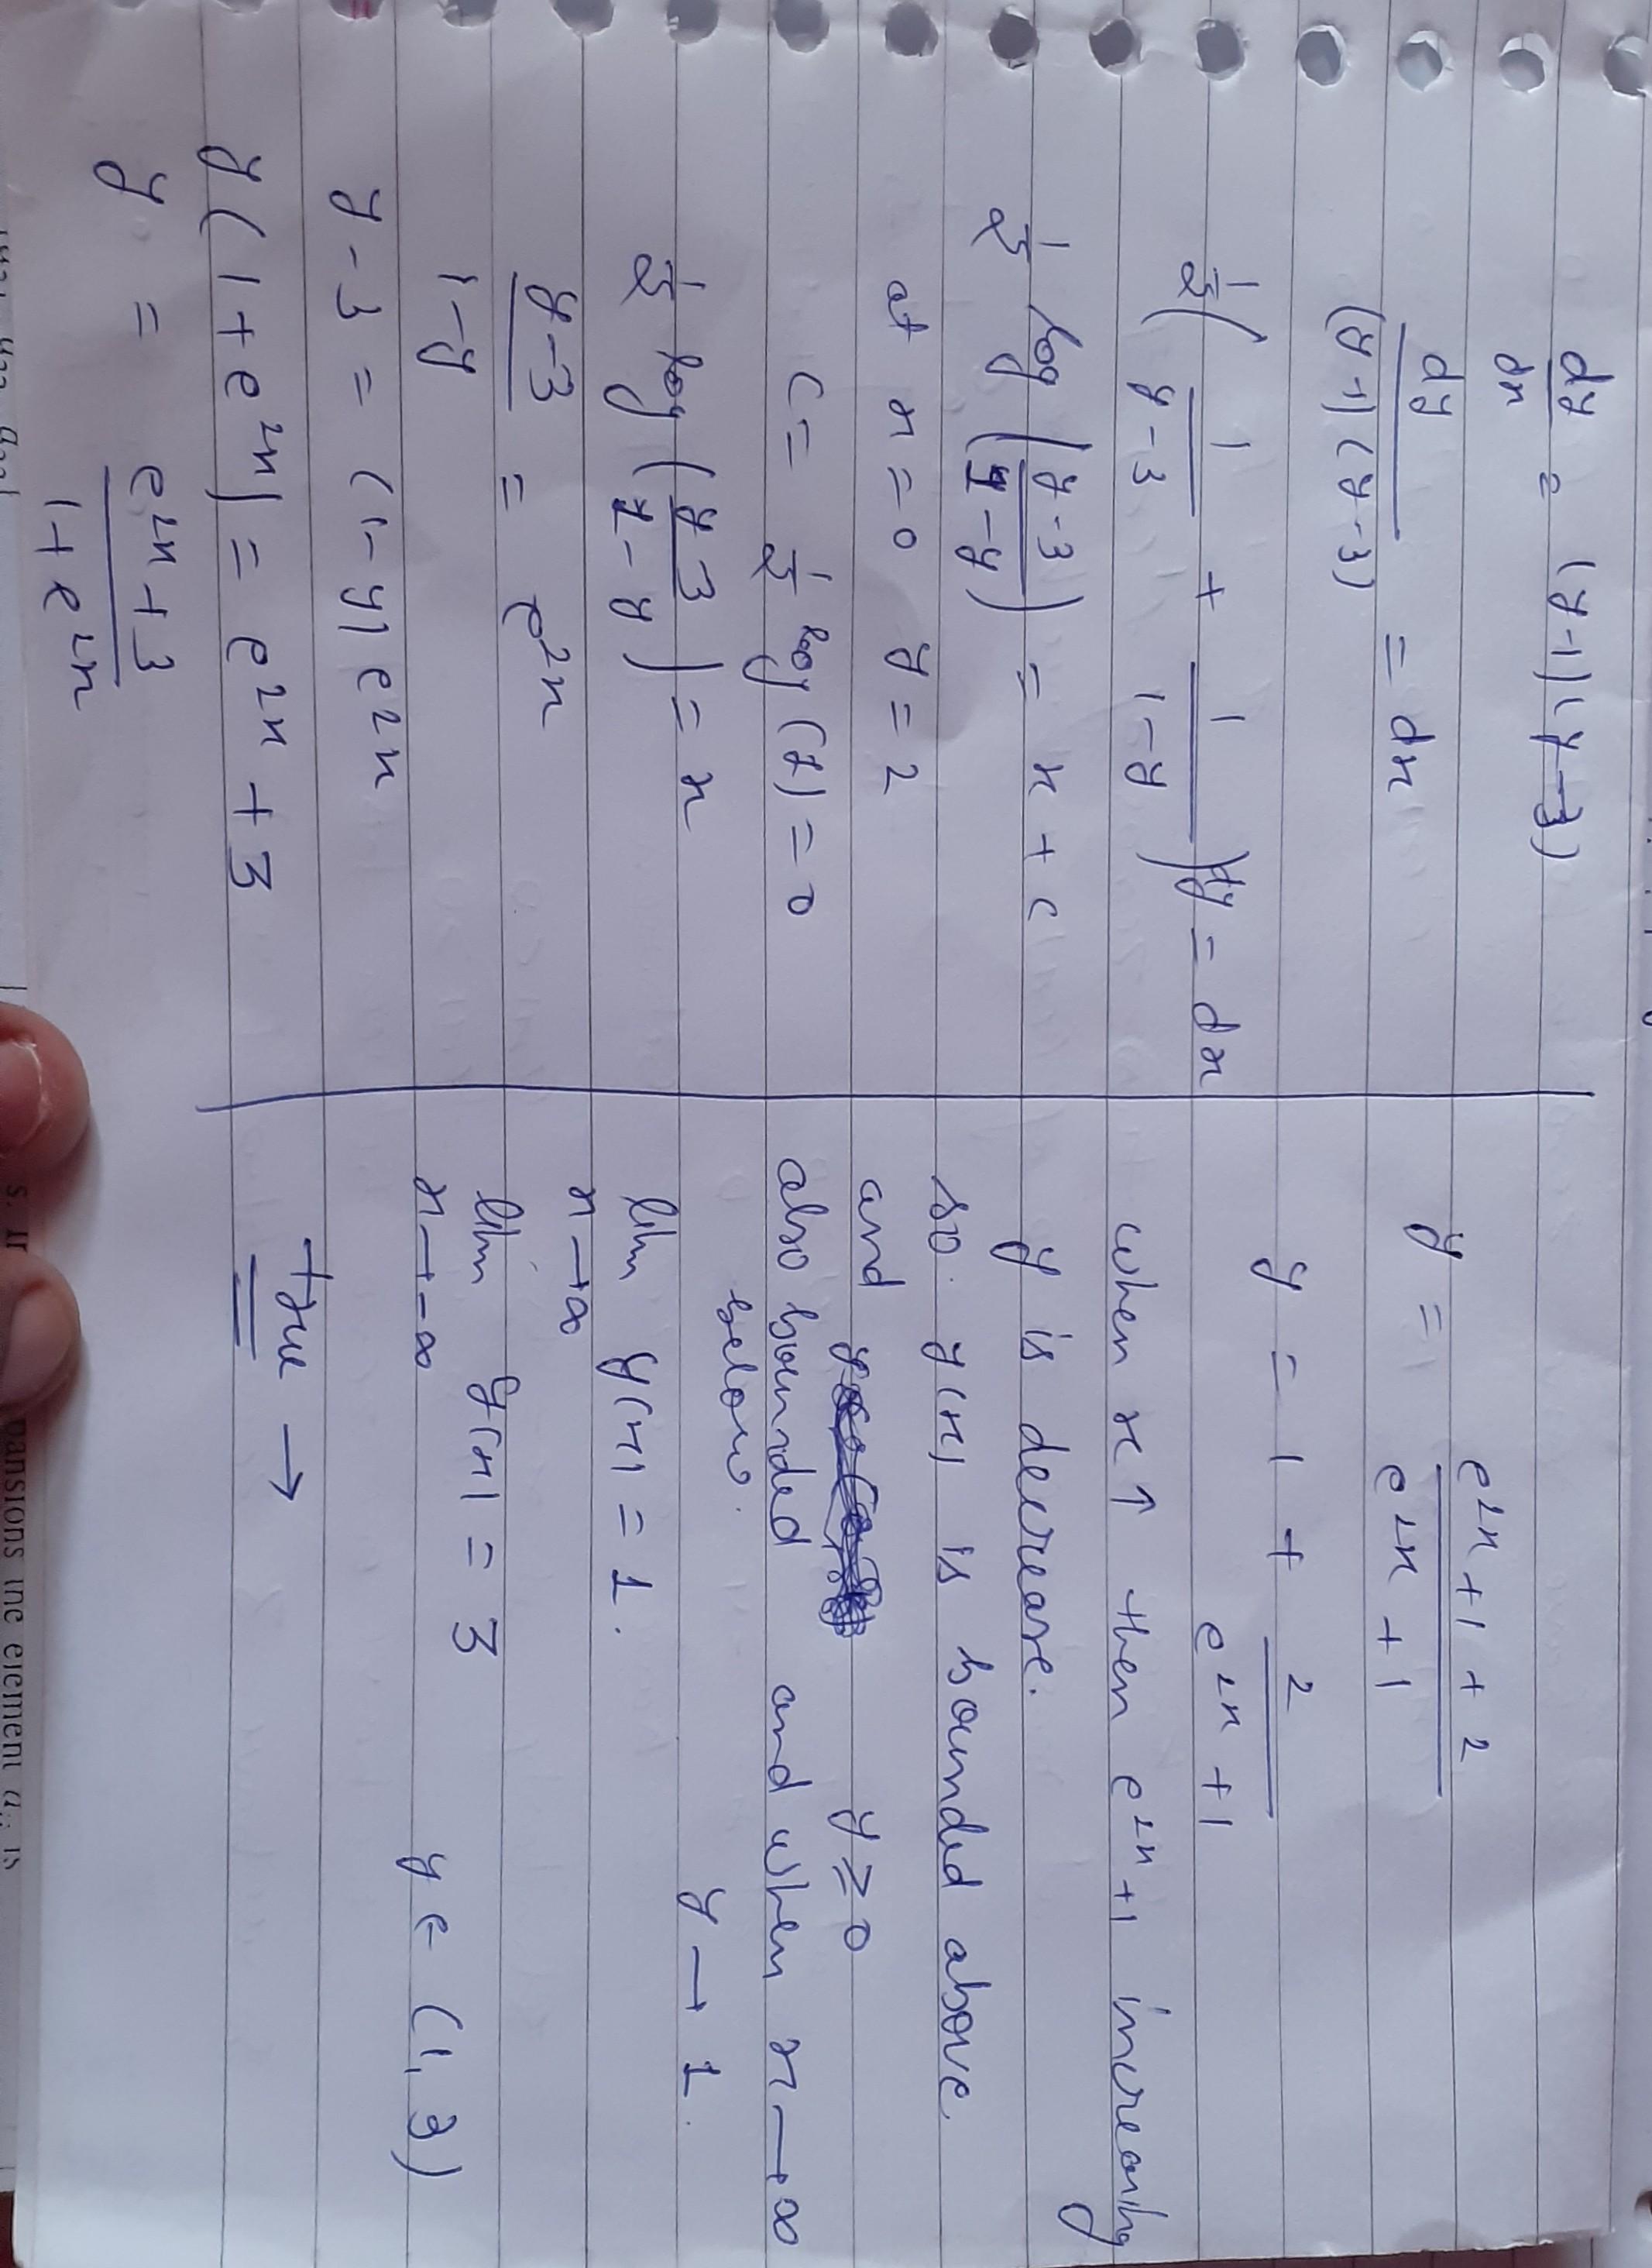 dy/dx = (y-1)(y-3)
dy/(y-1)(y-3) = dx
1/2 ( 1/(y-3) + 1/(1-y) ) dy = dx
1/2 log ( (y-3)/(1-y) ) = x + c
at x = 0 y = 2
c = 1/2 log (1) = 0
1/2 log ( (y-3)/(1-y) ) = x
(y-3)/(1-y) = e^2x
y - 3 = (1-y) e^2x
y (1 + e^2x) = e^2x + 3
y = (e^2x + 3)/(1 + e^2x)
y = (e^2x + 1 + 2)/(e^2x + 1)
y = 1 + 2/(e^2x + 1)
when x ↑ then e^2x + 1 increasing
y is decrease.
so y(x) is bounded above
and y ≥ 0
also bounded and when x → ∞
below. y → 1.
lim x→∞ y(x) = 1.
lim x→-∞ y(x) = 3
y ∈ (1, 3)
true →
s. If
pansions the element a
is